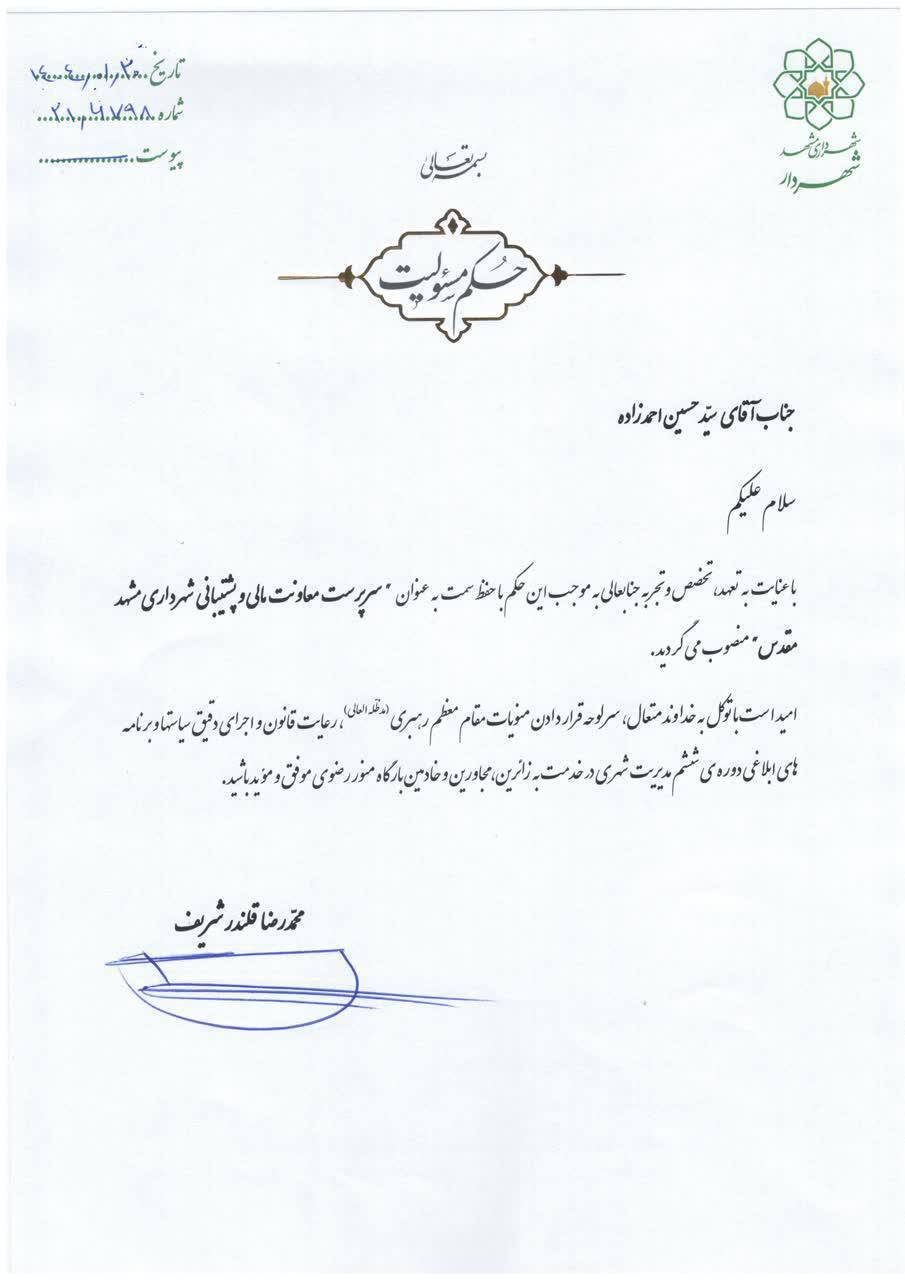 شهرداری مشهد
شهردار
تاریخ
شماره ۲۱/۶۷۹۸
پیوست
بسمه تعالی
حکم مسئولیت
جناب آقای سیّد حسین احمدزاده
سلام علیکم
با عنایت به تعهد، تخصص و تجربه جنابعالی به موجب این حکم با حفظ سمت به عنوان "سرپرست معاونت مالی و پشتیبانی شهرداری مشهد
مقدس" منصوب می گردید.
امید است با توکل به خداوند متعال، سرلوحه قرار دادن منویات مقام معظم رهبری (مدظله العالی)، رعایت قانون و اجرای دقیق سیاستها و برنامه
های ابلاغی دوره ی ششم مدیریت شهری در خدمت به زائرین، مجاورین و خادمین بارگاه منور رضوی موفق و مؤید باشید.
محمّدرضا قلندر شریف